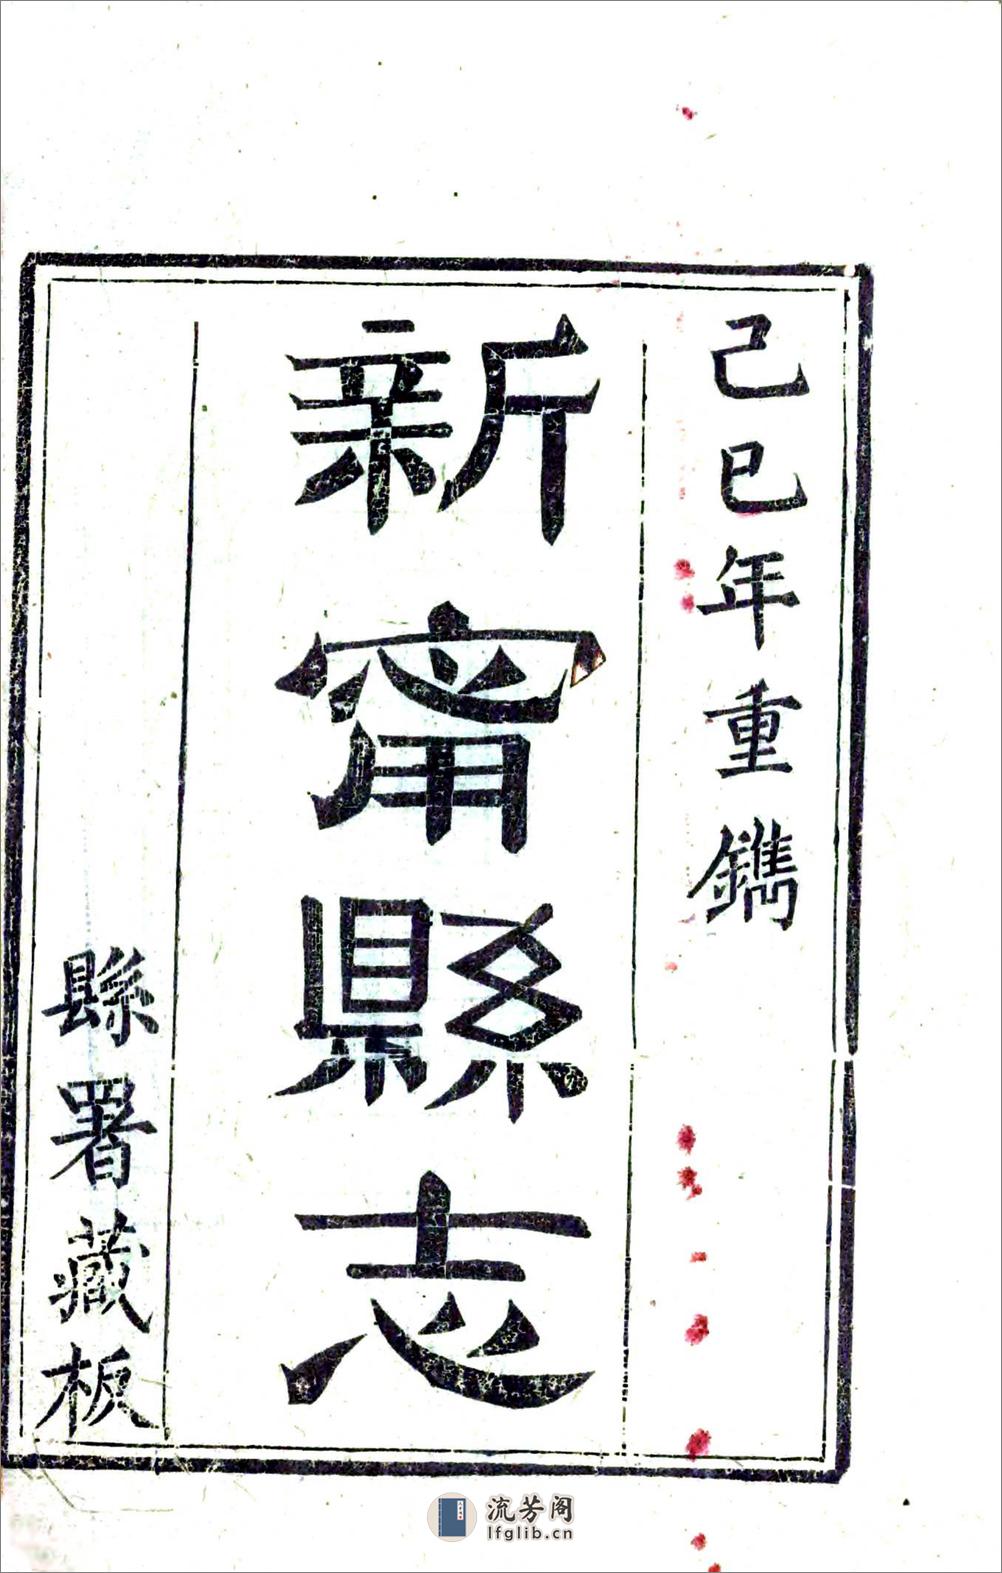 己巳年重鐫
新甯縣志
縣署藏板
流芳阁
lfglib.cn